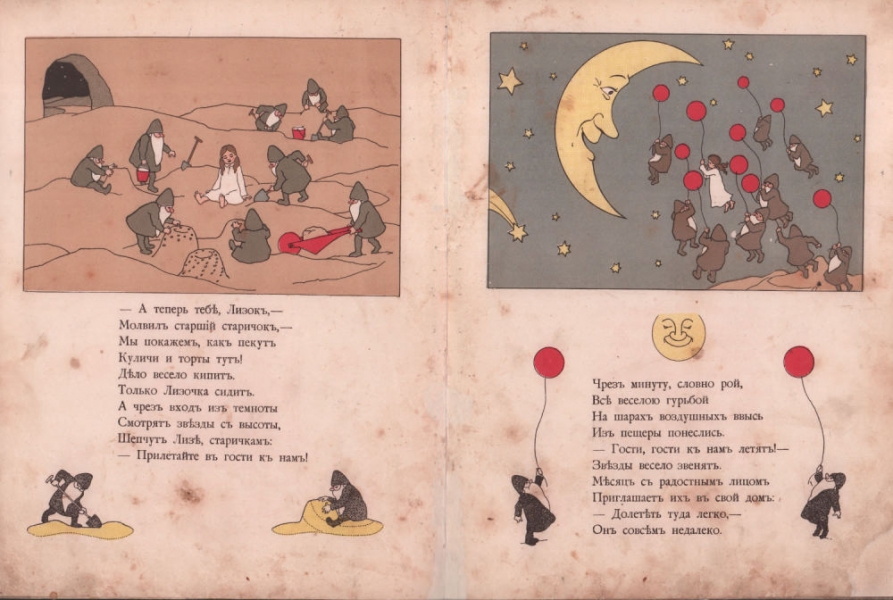 — А теперь тебѣ, Лизокъ,—
Молвилъ старшій старичокъ,—
Мы покажемъ, какъ пекутъ
Куличи и торты тутъ!
Дѣло весело кипитъ.
Только Лизочка сидитъ.
А чрезъ входъ изъ темноты
Смотрятъ звѣзды съ высоты,
Шепчутъ Лизѣ, старичкамъ:
— Прилетайте въ гости къ намъ!
Чрезъ минуту, словно рой,
Всѣ веселою гурьбой
На шарахъ воздушныхъ ввысь
Изъ пещеры понеслись.
— Гости, гости къ намъ летятъ!—
Звѣзды весело звенятъ.
Мѣсяцъ съ радостнымъ лицомъ
Приглашаетъ ихъ въ свой домъ:
— Долетѣть туда легко,—
Онъ совсѣмъ недалеко.